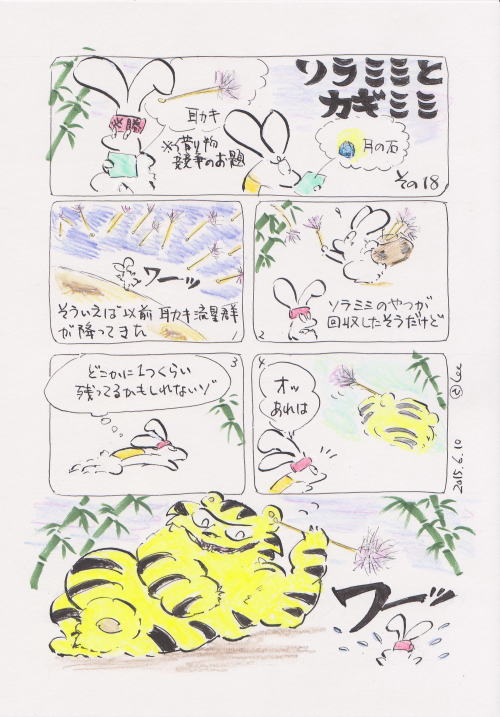 ソラミミと
カギミミ
その18
必勝
耳カキ
※借り物
競争のお題
月の石
1
ワーッ
そういえば以前 耳カキ流星群
が降ってきた
2
ソラミミのやつが
回収したそうだけど
3
どこかに1つくらい
残ってるかもしれないゾ
4
オッ
あれは
ワーッ
2015.6.10 ©Lee